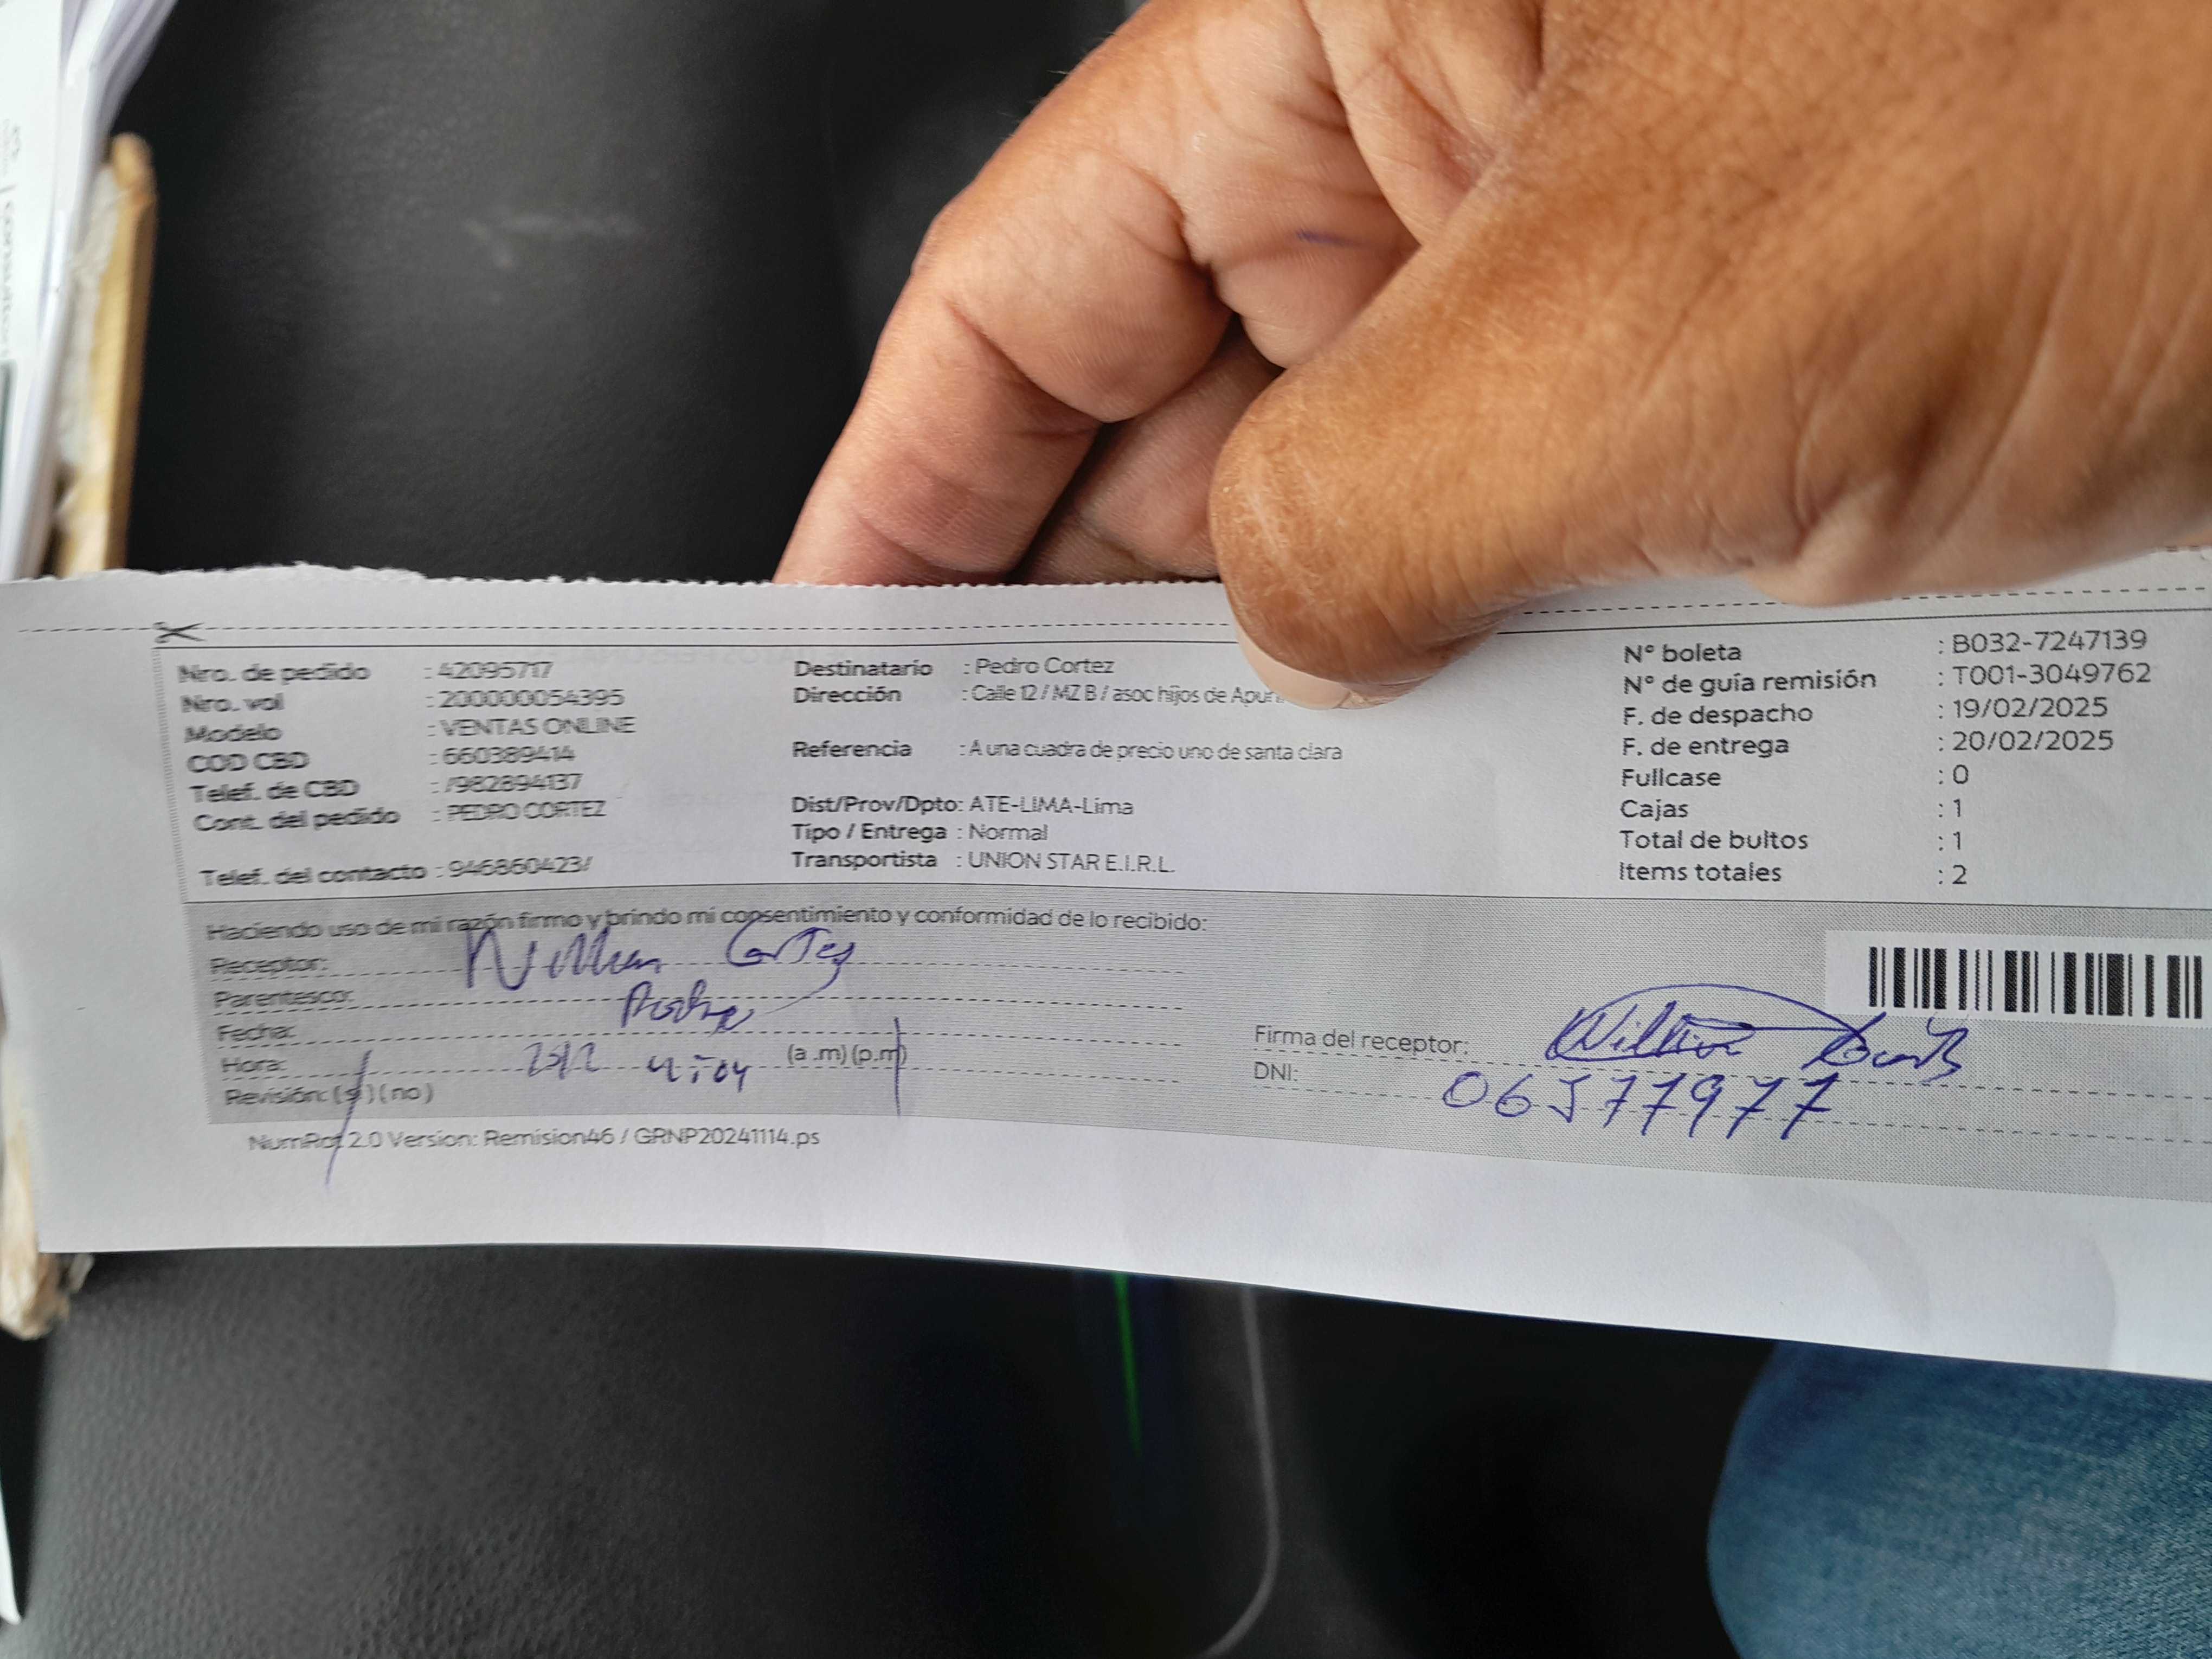 Nro. de pedido : 42095717
Nro. vol : 200000054395
Modelo : VENTAS ONLINE
COD CBD : 660389414
Telef. de CBD : /982894137
Cont. del pedido : PEDRO CORTEZ
Telef. del contacto : 946860423/
Destinatario : Pedro Cortez
Dirección : Calle 12 / MZ B / asoc hijos de
Referencia : A una cuadra de precio uno de santa clara
Dist/Prov/Dpto: ATE-LIMA-Lima
Tipo / Entrega : Normal
Transportista : UNION STAR E.I.R.L.
N° boleta : B032-7247139
N° de guía remisión : T001-3049762
F. de despacho : 19/02/2025
F. de entrega : 20/02/2025
Fullcase : 0
Cajas : 1
Total de bultos : 1
Items totales : 2
Haciendo uso de mi razón firmo y brindo mi consentimiento y conformidad de lo recibido:
Receptor: Cortez
Parentesco:
Fecha:
Hora: 4:04 (a .m) (p.m)
Revisión: (si) (no)
Firma del receptor: William
DNI: 06577977
NumRot 2.0 Version: Remision46 / GRNP20241114.ps